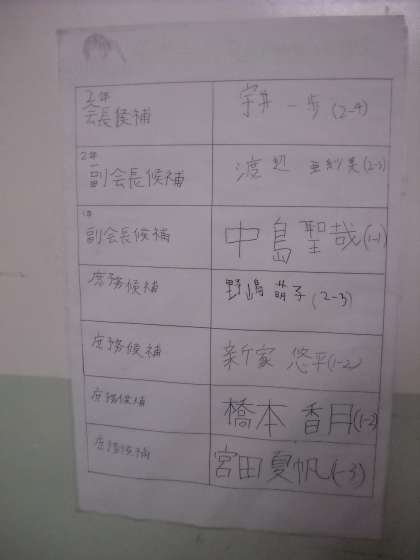 2年
会長候補
宇井 一歩 (2-4)
2年
副会長候補
渡辺 亜紗美 (2-3)
1年
副会長候補
中島聖哉 (1-1)
庶務候補
野嶋 萌子 (2-3)
庶務候補
新家 悠平 (1-2)
庶務候補
橋本 香月 (1-2)
庶務候補
宮田 夏帆 (1-3)